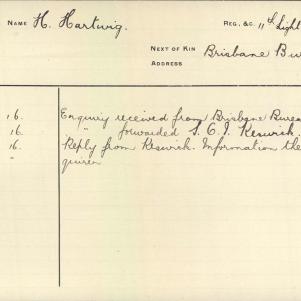 NAME H. Hartwig. REG. &C. 11th Light
NEXT OF KIN Brisbane Bu
ADDRESS
16. Enquiry received from Brisbane Bureau
16. " forwarded S. C. I. Keswick.
16. Reply from Keswick. Information the
" quirer